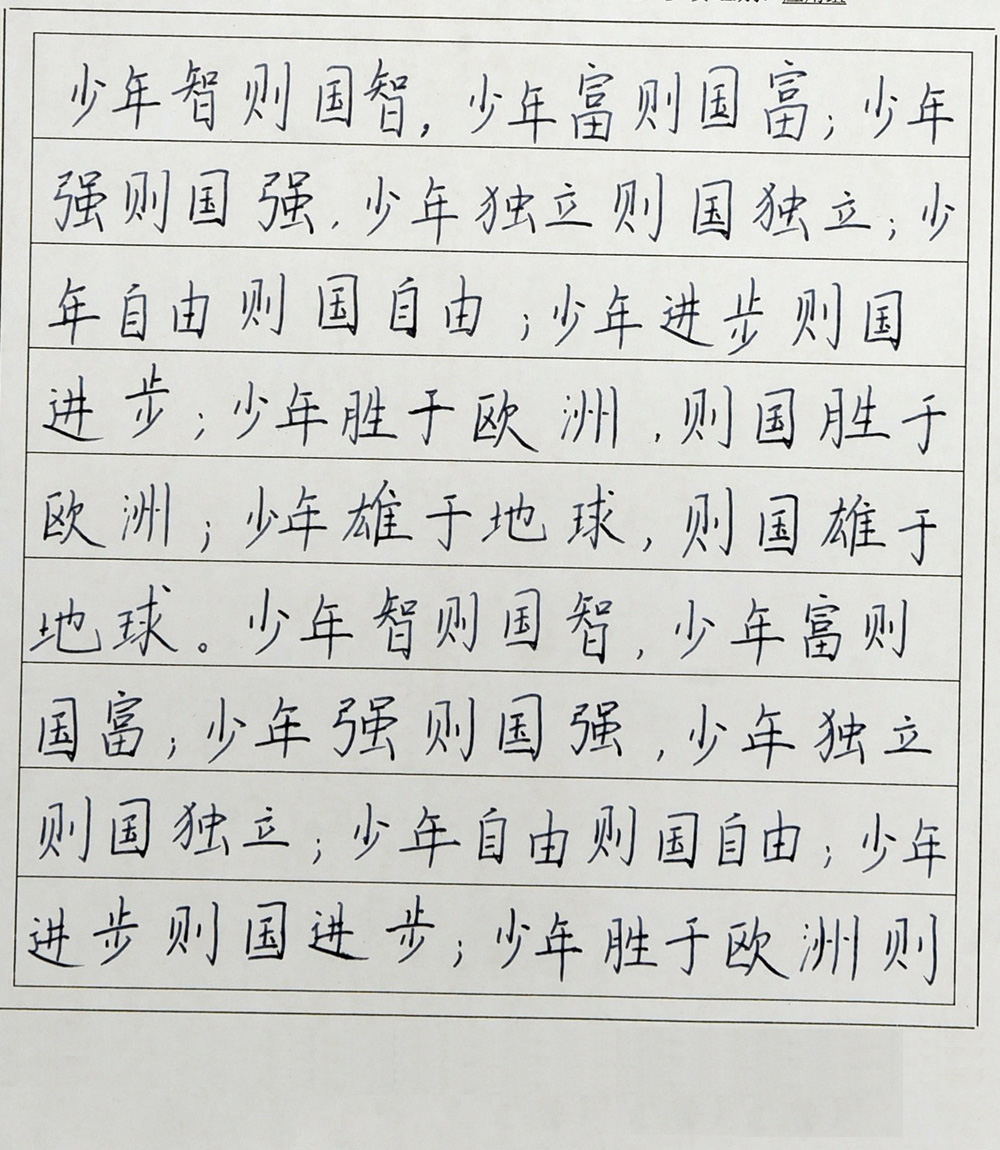 少年智则国智，少年富则国富；少年
强则国强，少年独立则国独立；少
年自由则国自由；少年进步则国
进步；少年胜于欧洲，则国胜于
欧洲；少年雄于地球，则国雄于
地球。少年智则国智，少年富则
国富；少年强则国强，少年独立
则国独立；少年自由则国自由；少年
进步则国进步；少年胜于欧洲则